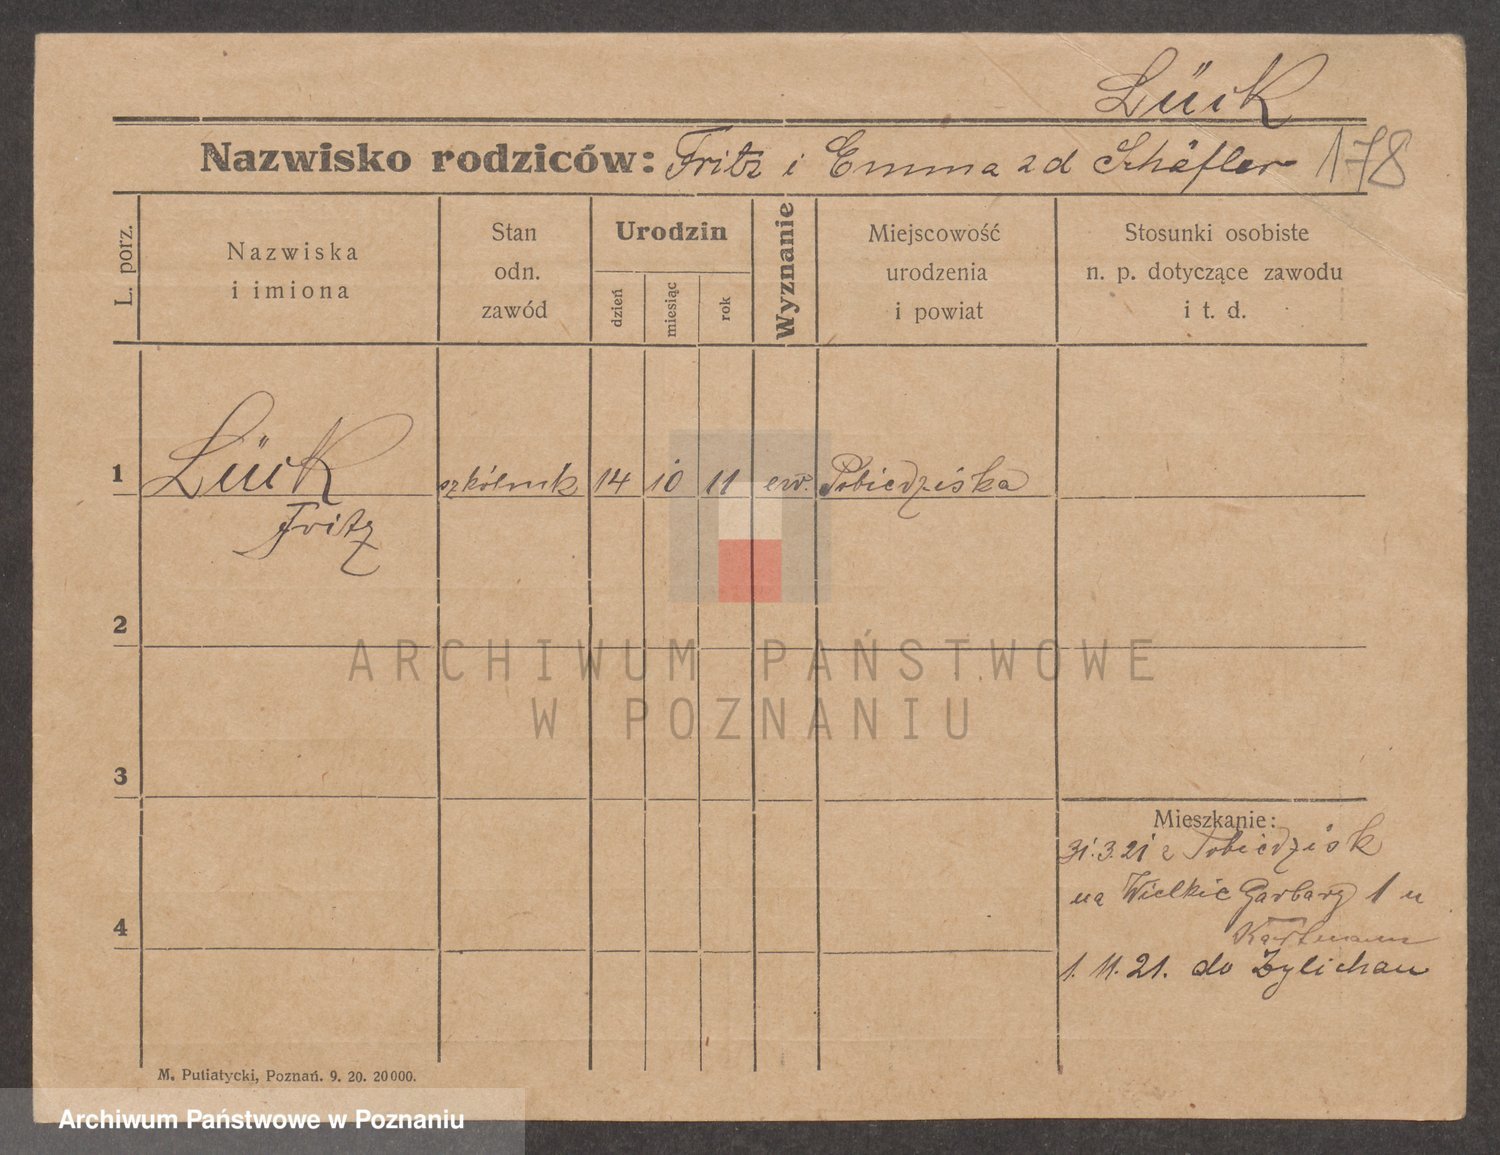 Lück
Nazwisko rodziców: Fritz i Emma zd Schäfler 178
L. porz.
Nazwiska
i imiona
Stan
odn.
zawód
Urodzin
dzień
miesiąc
rok
Wyznanie
Miejscowość
urodzenia
i powiat
Stosunki osobiste
n. p. dotyczące zawodu
i t. d.
1 Lück szkólnik 14 10 11 ew. Pobiedziska
Fritz
2
3
4
Mieszkanie:
31.3.21 z Pobiedzisk
na Wielkie Garbary 1 u
1.11.21. do Zylichau
M. Putiatycki, Poznań. 9. 20. 20000.
ARCHIWUM PAŃSTWOWE
W POZNANIU
Archiwum Państwowe w Poznaniu